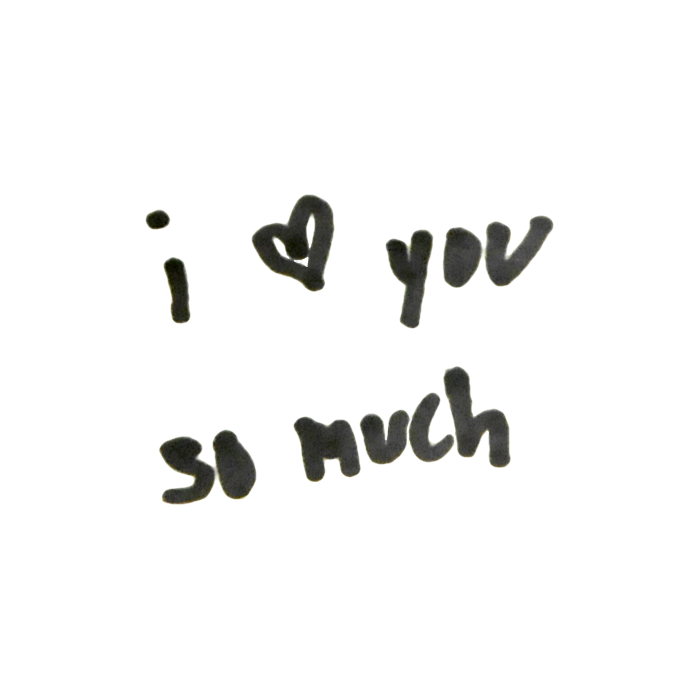 i ♥ you
so much